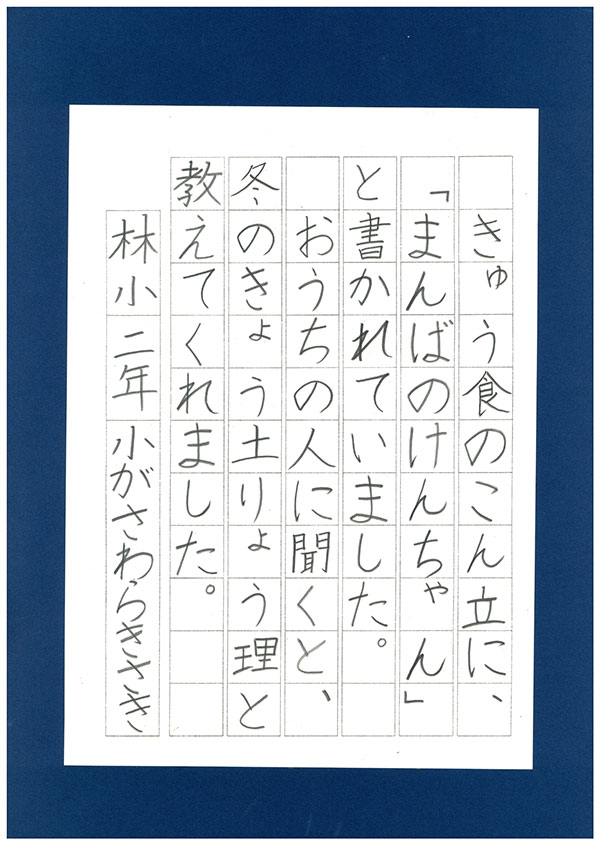 きゅう食のこん立に、
「まんばのけんちゃん」
と書かれていました。
おうちの人に聞くと、
冬のきょう土りょう理と
教えてくれました。
林小 二年 小がさわらきさき